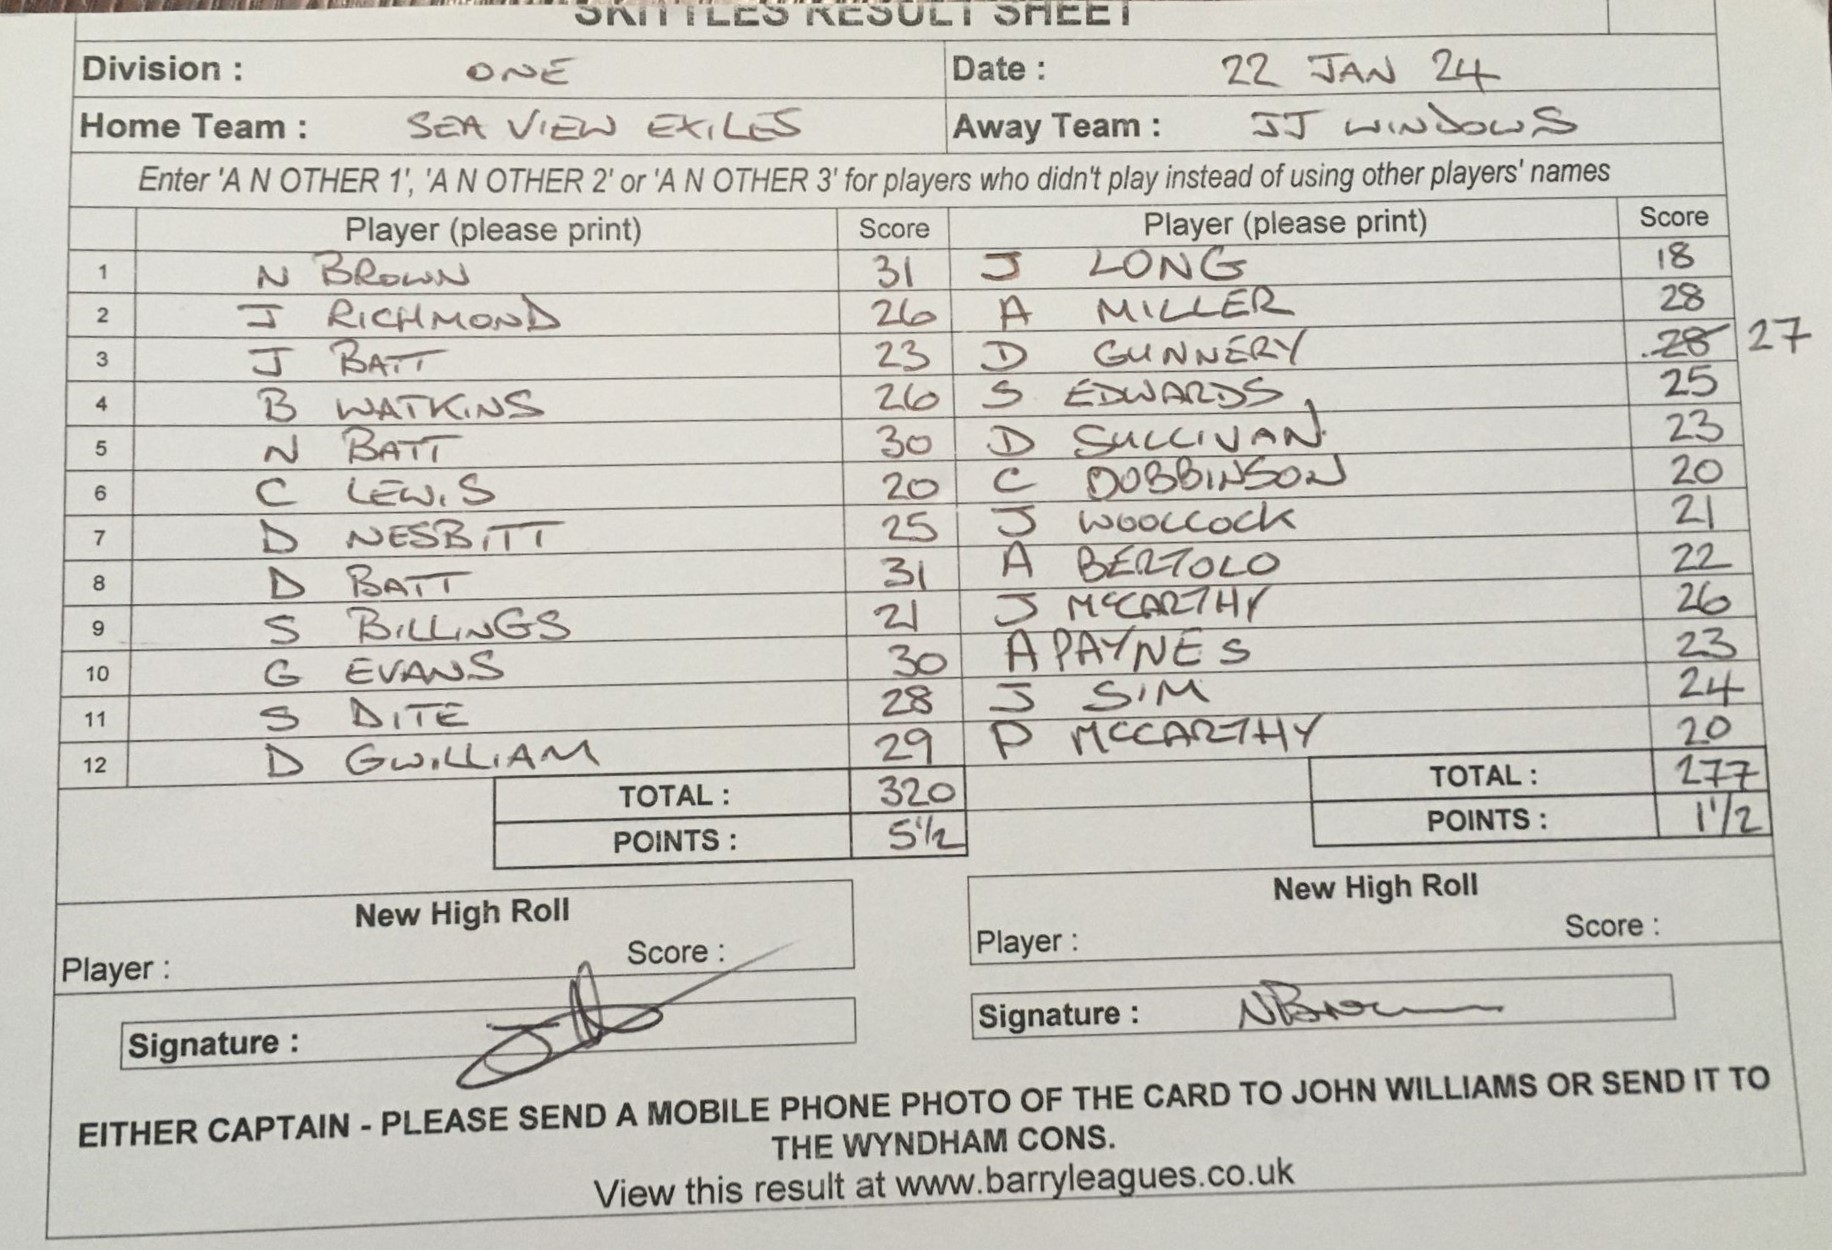 SKITTLES RESULT SHEET
Division : ONE Date : 22 JAN 24
Home Team : SEA VIEW EXILES Away Team : JJ WINDOWS
Enter 'A N OTHER 1', 'A N OTHER 2' or 'A N OTHER 3' for players who didn't play instead of using other players' names
Player (please print) Score Player (please print) Score
1 N BROWN 31 J LONG 18
2 J RICHMOND 26 A MILLER 28
3 J BATT 23 D GUNNERY 28 27
4 B WATKINS 26 S EDWARDS 25
5 N BATT 30 D SULLIVAN 23
6 C LEWIS 20 C DOBBINSON 20
7 D NESBITT 25 J WOOLCOCK 21
8 D BATT 31 A BERTOLO 22
9 S BILLINGS 21 J McCARTHY 26
10 G EVANS 30 A PAYNES 23
11 S DITE 28 J SIM 24
12 D GWILLIAM 29 P McCARTHY 20
TOTAL : 320 TOTAL : 277
POINTS : 5 1/2 POINTS : 1 1/2
New High Roll New High Roll
Player : Score : Player : Score :
Signature : Signature : N Brown
EITHER CAPTAIN - PLEASE SEND A MOBILE PHONE PHOTO OF THE CARD TO JOHN WILLIAMS OR SEND IT TO
THE WYNDHAM CONS.
View this result at www.barryleagues.co.uk